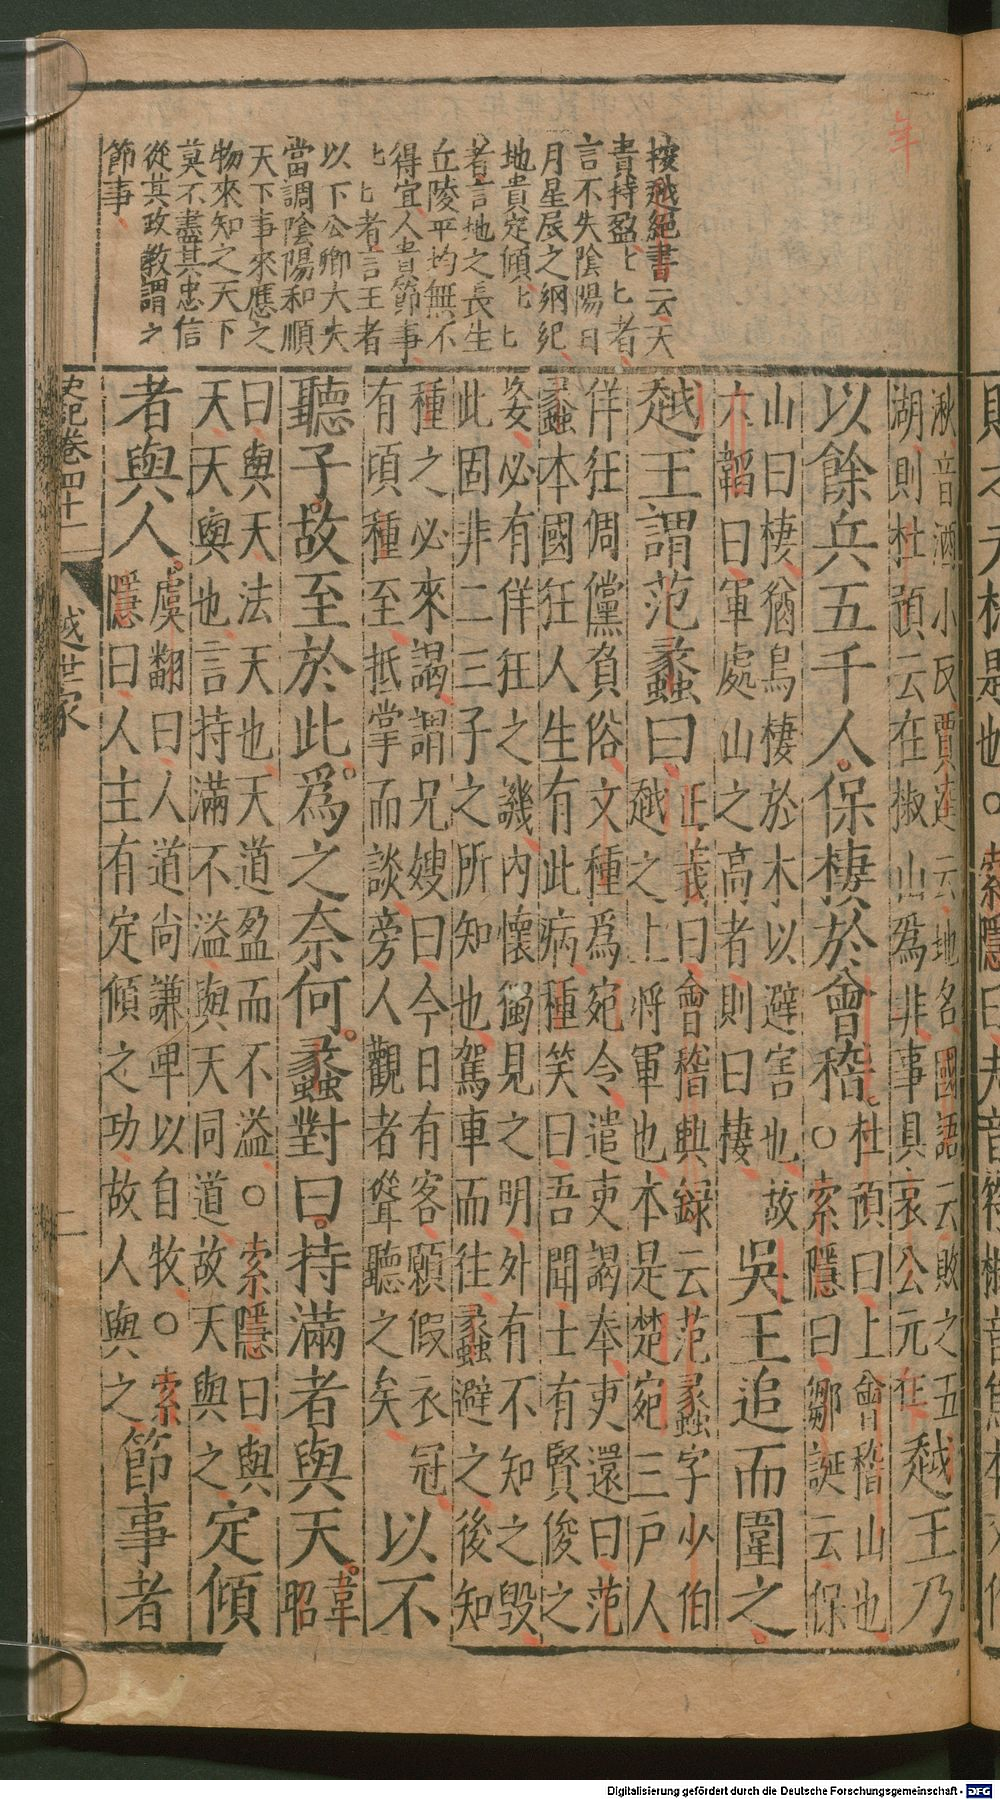 年
按越絕書云天
貴持盈匕匕者
言不失陰陽日
月星辰之綱紀
地貴定傾匕匕
者言地之長生
丘陵平均無不
得宜人貴節事
匕匕者言王者
以下公卿大夫
當調陰陽和順
天下事來應之
物來知之天下
莫不盡其忠信
從其政教謂之
節事
湫音酒小反賈逵云地名國語云敗之五
湖則杜預云在椒山爲非事具哀公元年越王乃
以餘兵五千人保棲於會稽杜預曰上會稽山也
○索隱曰鄒誕云保
山曰棲猶鳥棲於木以避害也故
六韜曰軍處山之高者則曰棲吳王追而圍之
越王謂范蠡曰正義曰會稽典錄云范蠡字少伯
越之上將軍也本是楚宛三戶人
佯狂倜儻負俗文種爲宛令遣吏謁奉吏還曰范
蠡本國狂人生有此病種笑曰吾聞士有賢俊之
姿必有佯狂之譏內懷獨見之明外有不知之毀
此固非二三子之所知也駕車而往蠡避之後知
種之必來謁謂兄嫂曰今日有客願假衣冠
有頃種至抵掌而談旁人觀者聳聽之矣以不
聽子故至於此爲之奈何蠡對曰持滿者與天韋
昭
曰與天法天也天道盈而不溢○索隱曰與
天天與也言持滿不溢與天同道故天與之定傾
者與人虞翻曰人道尚謙卑以自牧○索
隱曰人主有定傾之功故人與之節事者
史記卷四十一
越世家
二
Digitalisierung gefördert durch die Deutsche Forschungsgemeinschaft - DFG